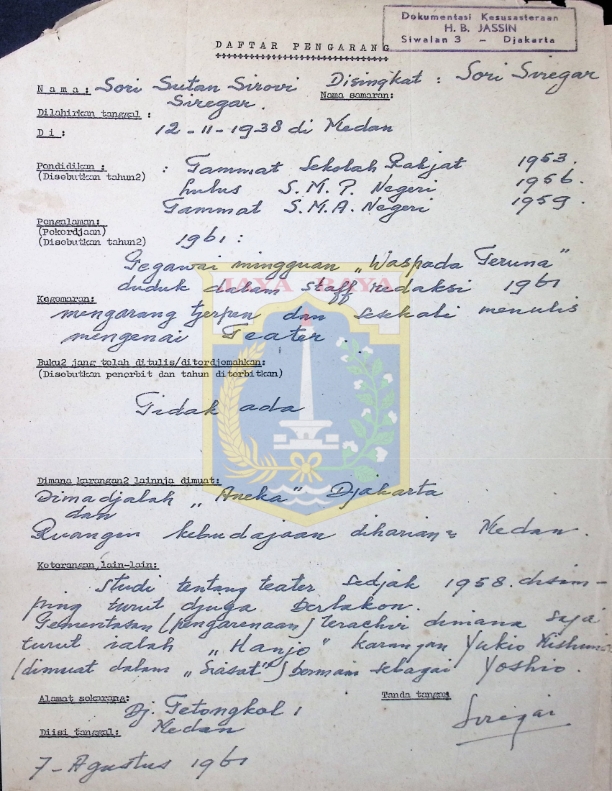 Dokumentasi Kesusasteraan
H. B. JASSIN
Siwalan 3 – Djakarta
DAFTAR PENGARANG
Nama: Sori Sutan Sirovi Siregar. Disingkat: Sori Siregar
Nama samaran:
Dilahirkan tanggal :
Di : 12-11-1938 di Medan
Pendidikan : : Tammat Sekolah Rakjat 1953.
(Disebutkan tahun2) Lulus S.M.P. Negeri 1956.
Tammat S.M.A. Negeri 1959.
Pengalaman:
(Pekerdjaan)
(Disebutkan tahun2) 1961:
Pegawai mingguan „Waspada Teruna"
duduk dalam staff redaksi 1961
JAYA RAYA
Kegemaran:
mengarang tjerpen dan sekali menulis
mengenai Teater.
Buku2 jang telah ditulis/diterdjemahkan:
(Disebutkan penerbit dan tahun diterbitkan)
Tidak ada
Dimana karangan2 lainnja dimuat:
Dimadjalah „Aneka" Djakarta
dan
Ruangan kebudajaan diharian2 Medan.
Keterangan lain-lain:
Studi tentang teater sedjak 1958. disam-
ping turut djuga berlakon.
Pementasan (pengarenaan) terachir dimana saja
turut ialah „Hanjo" karangan Yukio Mishima
(dimuat dalam „Siasat") bermain sebagai Yoshio.
Alamat sekarang: Dj. Tetongkol 1
Medan
Tanda tangan
Siregar
Diisi tanggal:
7-Agustus 1961